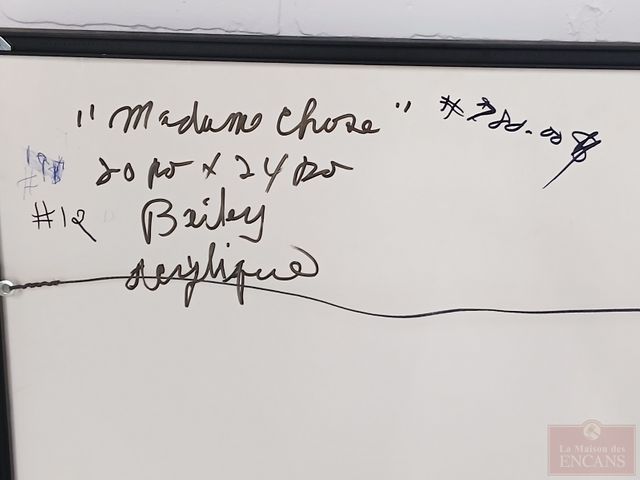 "Madame Chose"
20 po x 24 po
#12 Bailey
Acrylique
La Maison des
ENCANS